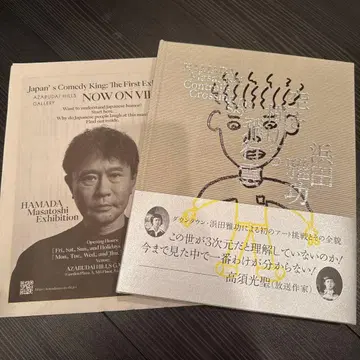 Japan's Comedy King: The First Ex
AZABUDAI HILLS
GALLERY
NOW ON VI
Want to understand Japanese humor?
Start here.
Why do Japanese people laugh at this man?
Find out inside.
HAMADA
Masatoshi
Exhibition
Opening Hours
Fri, Sat, Sun, and Holidays
Mon, Tue, Wed, and Thu
Venue
AZABUDAI HILLS GA
浜田
雅功
ダウンタウン・浜田雅功による初のアート挑戦とその全貌
この世が3次元だと理解していないのか!
今まで見た中で一番わけが分からない!
高須光聖(放送作家)